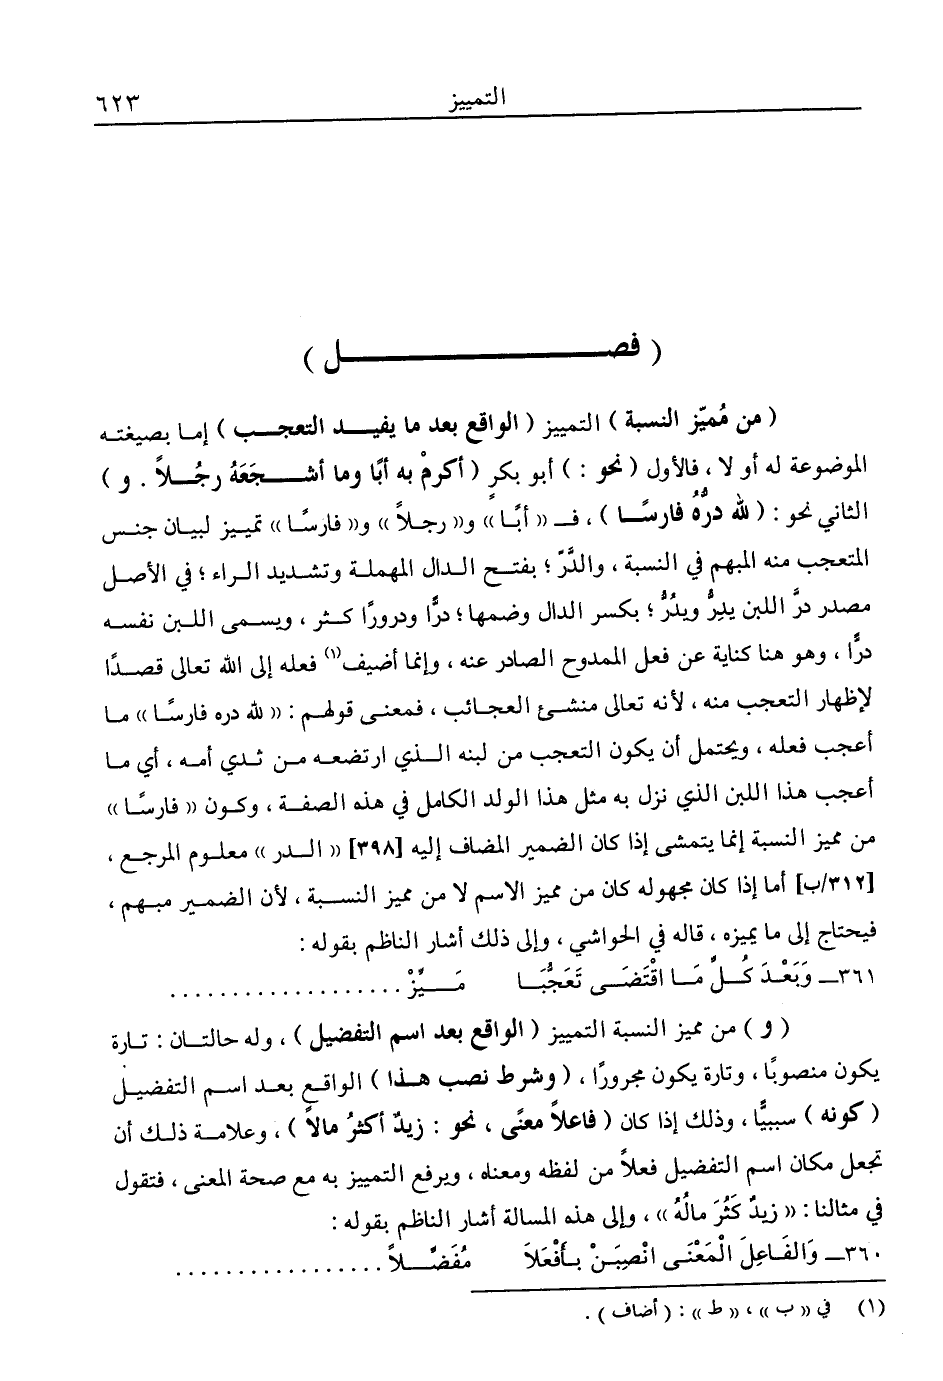 التمييز ٦٢٣
( فصــــــــــل )
( من مُميّز النسبة ) التمييز ( الواقع بعد ما يفيـد التعجب ) إما بصيغته
الموضوعة له أو لا ، فالأول ( نحو : ) أبو بكرٍ ( أكرمْ به أبًا وما أشجَعَهُ رجُلاً . و )
الثاني نحو : ( لله درُّهُ فارسًا ) ، فـ « أبًا » و« رجلاً » و« فارسًا » تمييز لبيان جنس
المتعجب منه المبهم في النسبة ، والدَّرّ ؛ بفتح الدال المهملة وتشديد الراء ؛ في الأصل
مصدر درَّ اللبن يدِرُّ ويدُرُّ ؛ بكسر الدال وضمها ؛ درًّا ودرورًا كثر ، ويسمى اللبن نفسه
درًّا ، وهو هنا كناية عن فعل الممدوح الصادر عنه ، وإنما أضيف(١) فعله إلى الله تعالى قصدًا
لإظهار التعجب منه ، لأنه تعالى منشئ العجائب ، فمعنى قولهم : « لله دره فارسًا » ما
أعجب فعله ، ويحتمل أن يكون التعجب من لبنه الذي ارتضعه من ثدي أمه ، أي ما
أعجب هذا اللبن الذي نزل به مثل هذا الولد الكامل في هذه الصفة ، وكون « فارسًا »
من مميز النسبة إنما يتمشى إذا كان الضمير المضاف إليه [٣٩٨] « الدر » معلوم المرجع ،
[٣١٢/ب] أما إذا كان مجهوله كان من مميز الاسم لا من مميز النسبة ، لأن الضمير مبهم ،
فيحتاج إلى ما يميزه ، قاله في الحواشي ، وإلى ذلك أشار الناظم بقوله :
٣٦١ــ وَبَعْدَ كُلِّ مَا اقْتَضَى تَعَجُّبَا مَيِّزْ ...................
( و ) من مميز النسبة التمييز ( الواقع بعد اسم التفضيل ) ، وله حالتان : تارة
يكون منصوبًا ، وتارة يكون مجرورًا ، ( وشرط نصب هذا ) الواقع بعد اسم التفضيل
( كونه ) سببيًّا ، وذلك إذا كان ( فاعلاً معنًى ، نحو : زيدٌ أكثرُ مالاً ) ، وعلامة ذلك أن
تجعل مكان اسم التفضيل فعلاً من لفظه ومعناه ، ويرفع التمييز به مع صحة المعنى ، فتقول
في مثالنا : « زيدٌ كَثُرَ مالُهُ » ، وإلى هذه المسالة أشار الناظم بقوله :
٣٦٠ــ وَالفَاعِلَ الْمَعْنَى انْصِبَنْ بِأَفْعَلاَ مُفَضِّلاً .................
(١) في « ب » ، « ط » : ( أضاف ) .